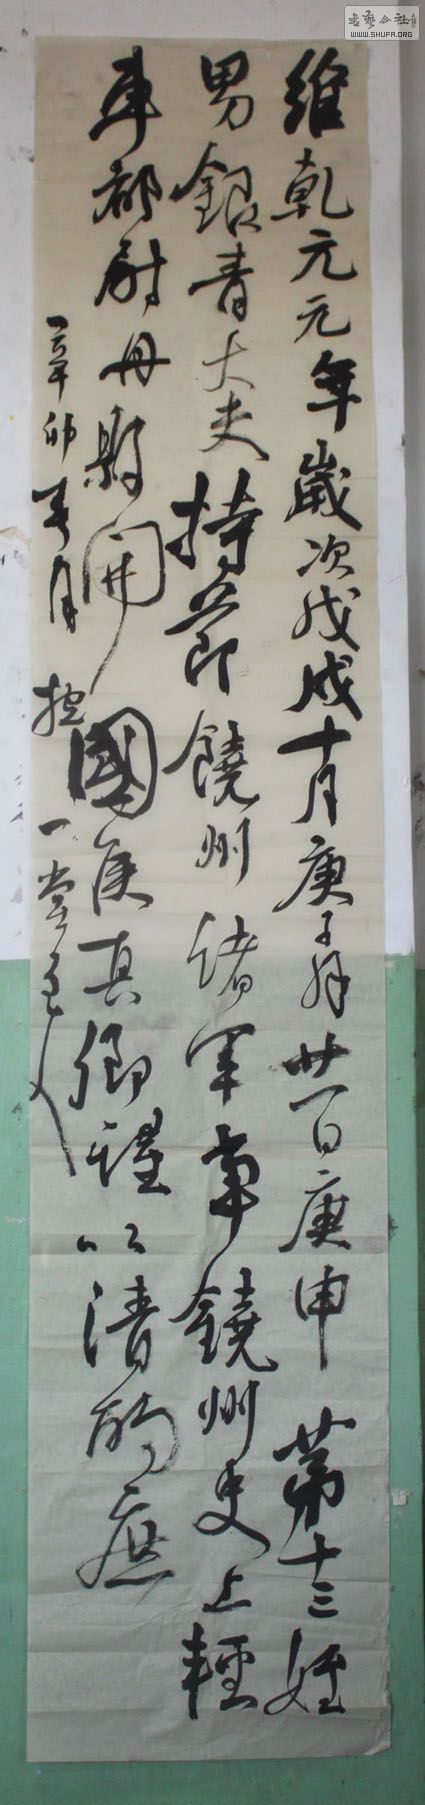 維乾元元年歲次戊戌十月庚子朔廿一日庚申第十三姪
男銀青大夫持節饒州諸軍事饒州史上輕
車都尉丹縣開國侯真卿謹以清酌庶
辛卯春月一堂主人
書藝公社
WWW.SHUFA.ORG